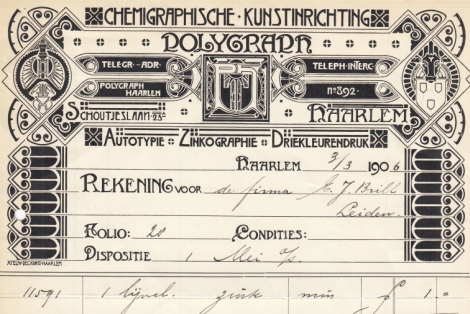 CHEMIGRAPHISCHE · KUNSTINRICHTING
POLYGRAPH
TELEGR - ADR - TELEPH - INTERC
POLYGRAPH HAARLEM No 892
SCHOUTJESLAAN - 23a HAARLEM
AUTOTYPIE ZINKOGRAPHIE DRIEKLEURENDRUK
HAARLEM 3/3 1906
REKENING VOOR de firma E. J. Brill
Leiden.
FOLIO: 20 CONDITIES:
DISPOSITIE 1 Mei
11591 1 lijncl. zink min f 1 =